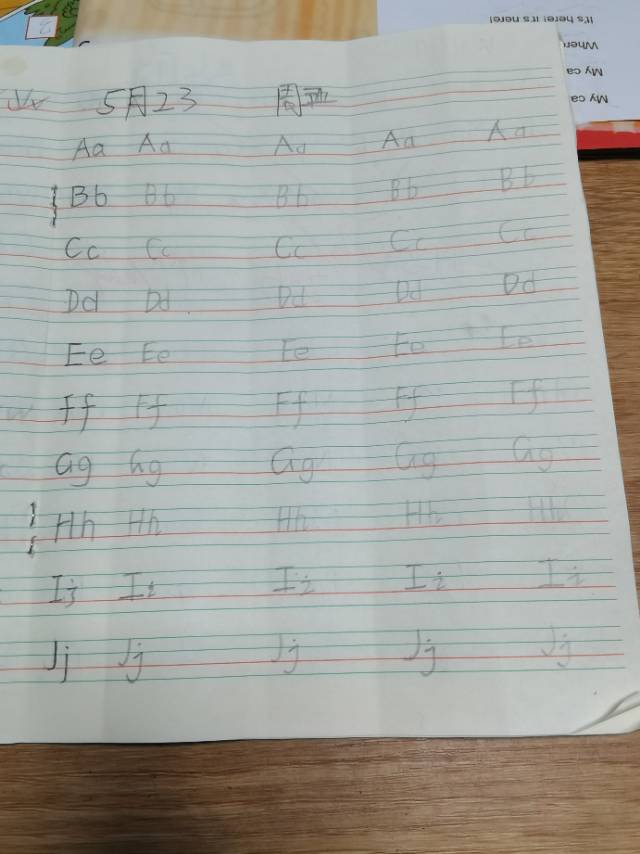 It's here! It's here!
Where
My ca
My ca
5月23 周四
Aa Aa Aa Aa Aa
Bb Bb Bb Bb Bb
Cc Cc Cc Cc Cc
Dd Dd Dd Dd Dd
Ee Ee Ee Ee Ee
Ff Ff Ff Ff Ff
Gg Gg Gg Gg Gg
Hh Hh Hh Hh Hh
Ij Ii Ii Ii Ii
Jj Jj Jj Jj Jj